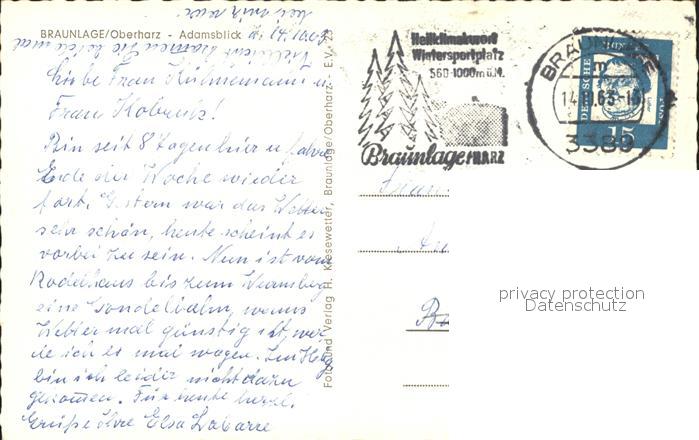 bei mir war.
BRAUNLAGE/Oberharz - Adamsblick
Vielleicht kommen Sie doch mal
Liebe Frau Kühnemann u
Frau Kobuck!
Bin seit 8 Tagen hier u. fahre
Ende der Woche wieder
fort. Gestern war das Wetter
sehr schön, heute scheint es
vorbei zu sein. Nun ist vom
Rodelhaus bis zum Wurmberg
eine Gondelbahn, wenns
Wetter mal günstig ist, wer-
de ich es mal wagen. Im Hbg
bin ich leider nicht dazu
gekommen. Für heute herzl.
Grüße Ihre Elsa Labarre
Foto und Verlag H. Kiesewetter, Braunlage/Oberharz
Heilklimakurort
Wintersportplatz
560-1000m ü.M.
Braunlage HARZ
BRAUNLAGE
3389
DEUTSCHE
15
Frau
privacy protection
Datenschutz